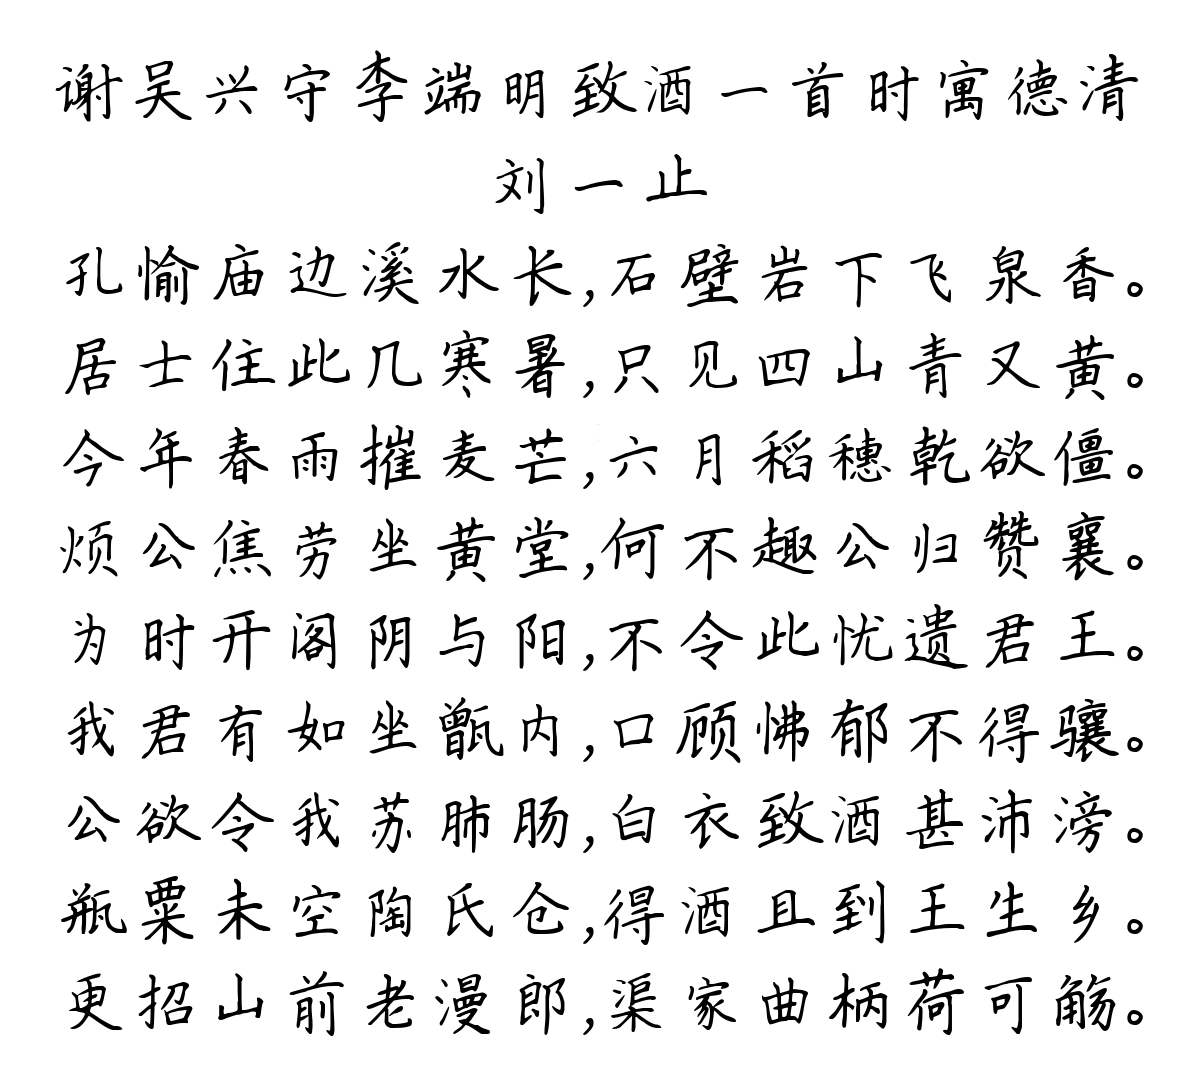 谢吴兴守李端明致酒一首时寓德清
刘一止
孔愉庙边溪水长,石壁岩下飞泉香。
居士住此几寒暑,只见四山青又黄。
今年春雨摧麦芒,六月稻穗乾欲僵。
烦公焦劳坐黄堂,何不趣公归赞襄。
为时开阁阴与阳,不令此忧遗君王。
我君有如坐甑内,口顾怫郁不得骧。
公欲令我苏肺肠,白衣致酒甚沛滂。
瓶粟未空陶氏仓,得酒且到王生乡。
更招山前老漫郎,渠家曲柄荷可觞。